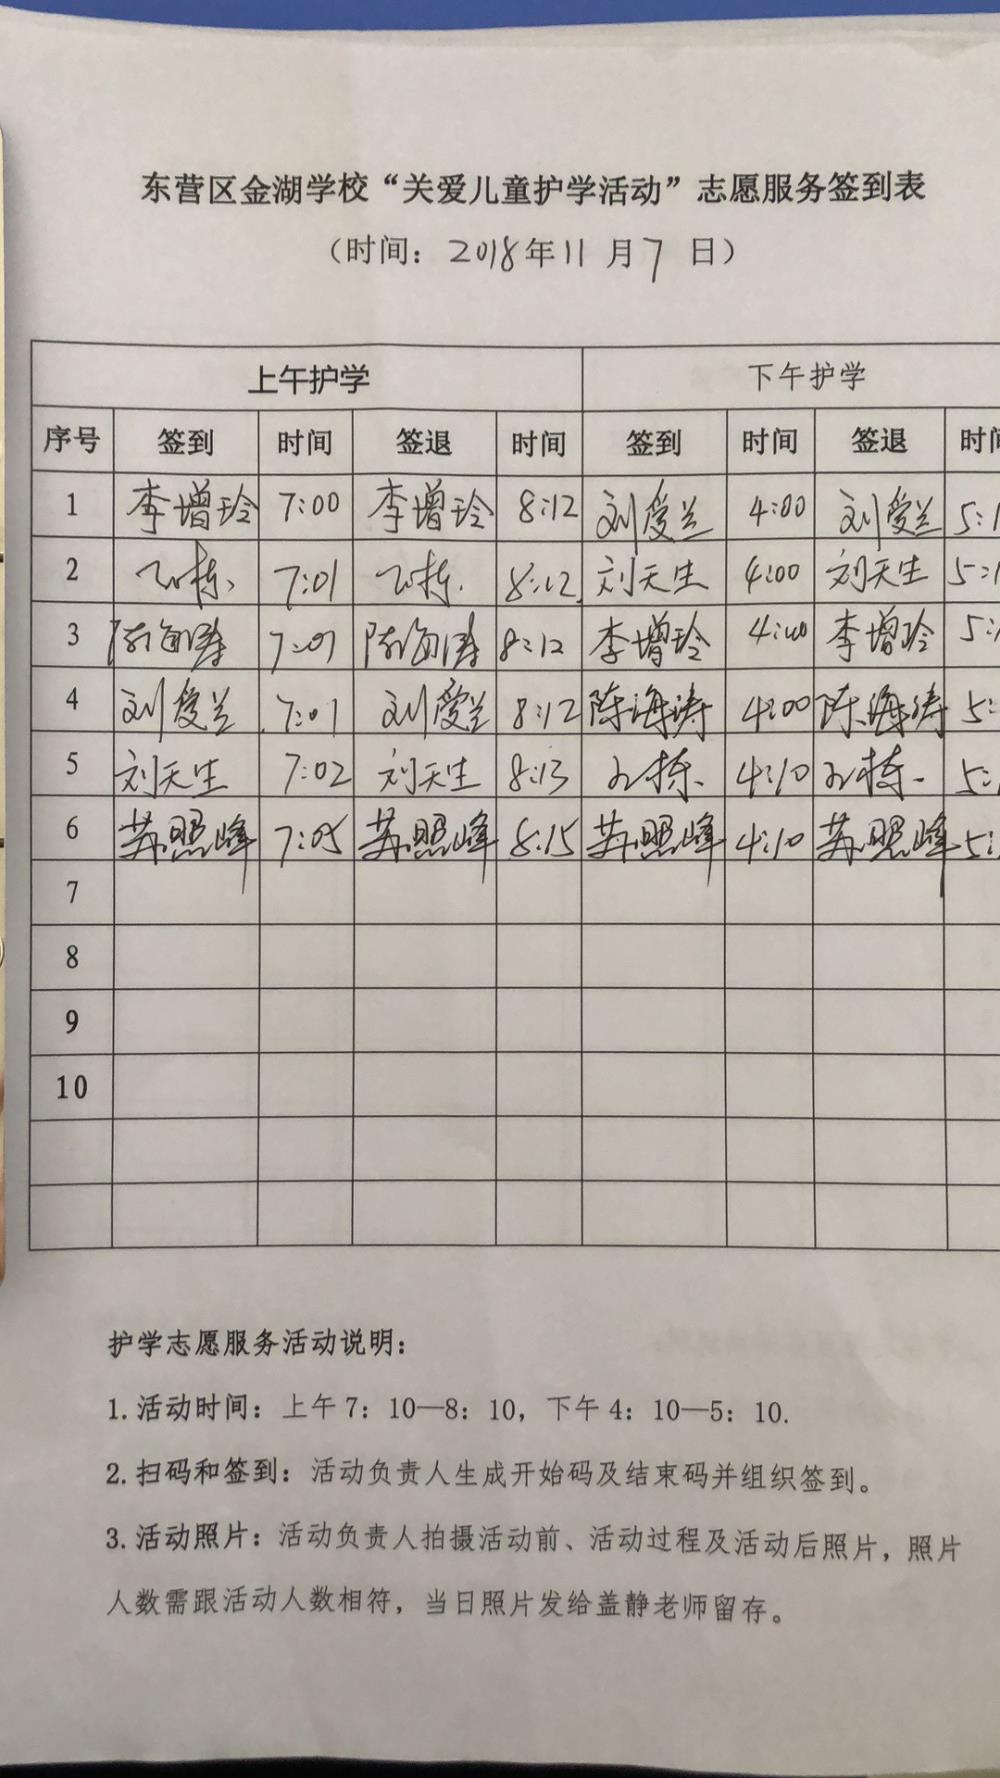 东营区金湖学校“关爱儿童护学活动”志愿服务签到表
（时间：2018年11月7日）
上午护学 下午护学
序号 签到 时间 签退 时间 签到 时间 签退 时间
1 李增玲 7:00 李增玲 8:12 刘爱兰 4:00 刘爱兰 5:1
2 7:01 8:12 刘天生 4:00 刘天生 5:1
3 陈海涛 7:01 陈海涛 8:12 李增玲 4:00 李增玲 5:
4 刘爱兰 7:01 刘爱兰 8:12 陈海涛 4:00 陈海涛 5:
5 刘天生 7:02 刘天生 8:13 4:10 5:
6 苏照峰 7:05 苏照峰 8:15 苏照峰 4:10 苏照峰 5:
7
8
9
10
护学志愿服务活动说明：
1.活动时间：上午7：10—8：10，下午4：10—5：10.
2.扫码和签到：活动负责人生成开始码及结束码并组织签到。
3.活动照片：活动负责人拍摄活动前、活动过程及活动后照片，照片
人数需跟活动人数相符，当日照片发给盖静老师留存。